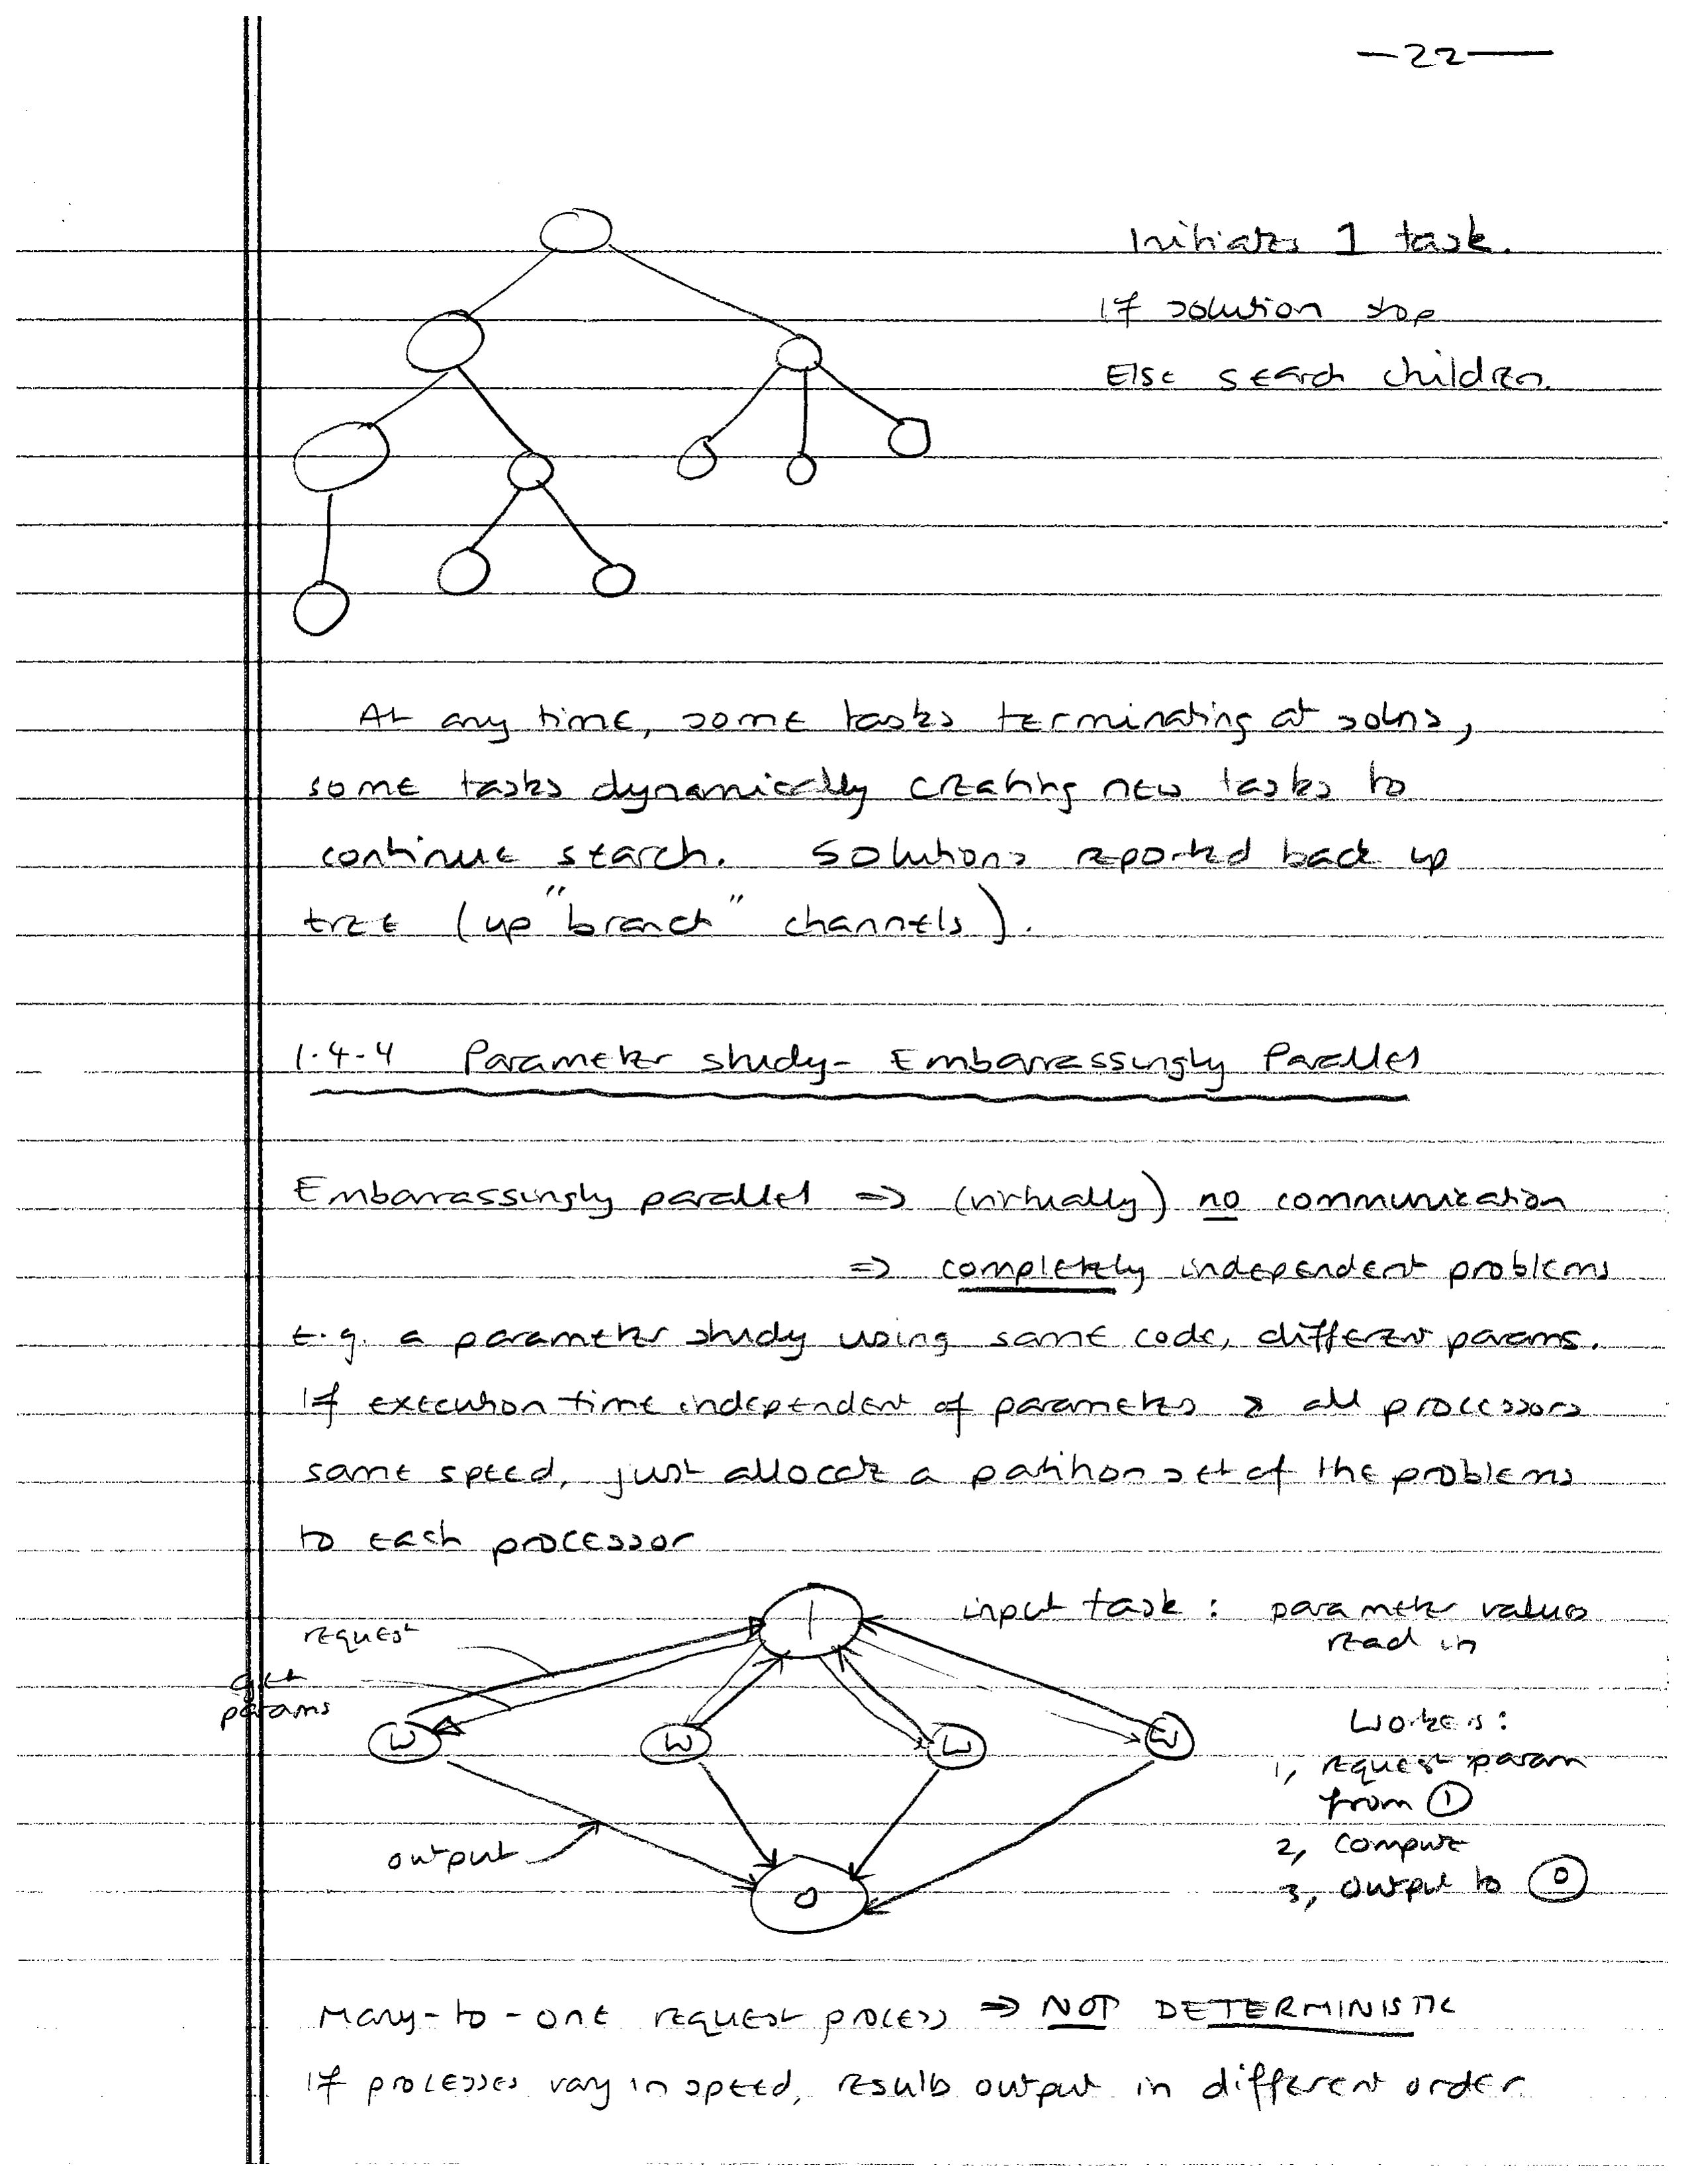 —22—
Initiates 1 task.
If solution stop
Else search children.
At any time, some tasks terminating at solns,
some tasks dynamically creating new tasks to
continue search. Solutions reported back up
tree (up "branch" channels).
1.4.4 Parameter study - Embarrassingly Parallel
Embarrassingly parallel => (virtually) no communication
=> completely independent problems
e.g. a parameter study using same code, different params.
If execution time independent of parameters & all processors
same speed, just allocate a partition set of the problems
to each processor
I
input task : parameter values
read in
request
get
params
W W W W
Workers:
1, request param
from I
2, compute
3, output to O
output
O
Many-to-one request process => NOT DETERMINISTIC
If processes vary in speed, results output in different order